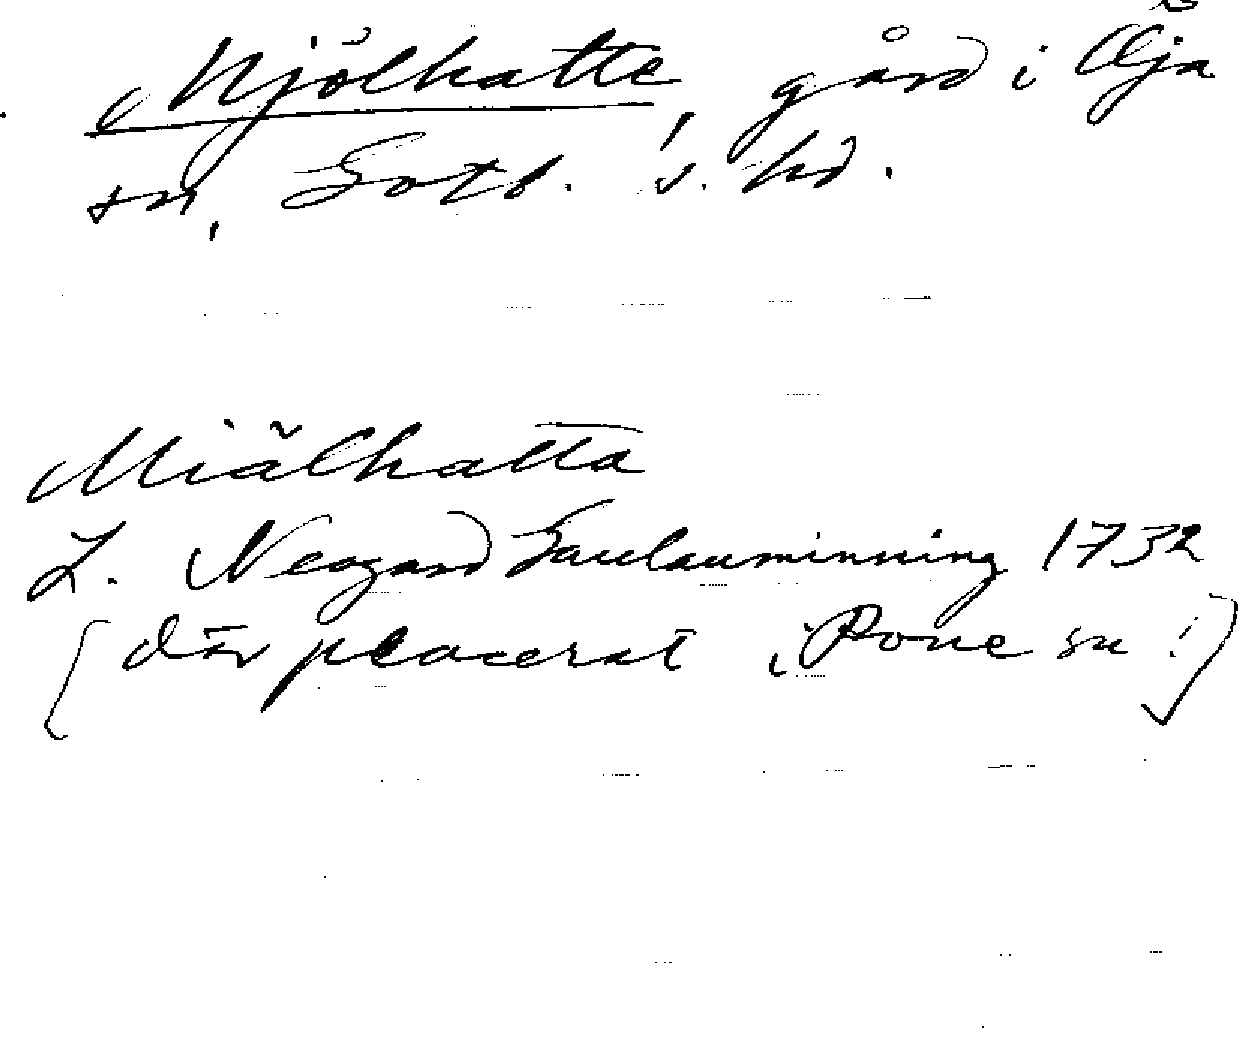 Mjölhatte, gård i Öja
sn, Gotl. s. hd.
Miälhatta
L. Neogard Gaulauminning 1732
[där placerat i Rone sn!]